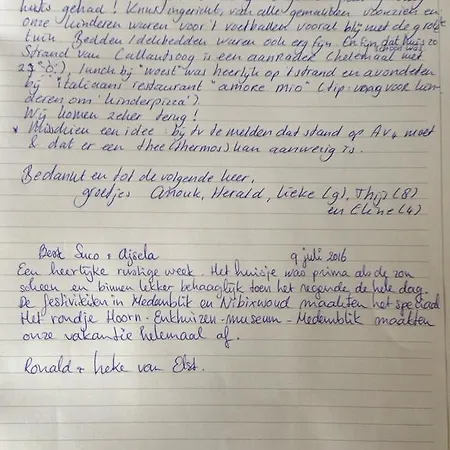 gehad! Knus ingericht, van alle gemakken voorzien en
onze kinderen waren voor 't voetballen vooral blij met de grote
tuin. Bedden/dekbedden waren ook erg fijn. En fijn dat huis zo schoon was
Strand van Callantsoog is een aanrader (helemaal met
lunch bij "woest" was heerlijk op 't strand en avondeten
bij italiaans restaurant "amore mio" (tip: vraag voor kin-
deren om 'kinderpizza').
Wij komen zeker terug!
* Misschien een idee: bij tv te melden dat stand op Av4 moet
& dat er een thee(thermos)kan aanwezig is.
Bedankt en tot de volgende keer,
groetjes Anouk, Herald, Lieke (9), Thijs (8)
en Eline (4)
Beste Suco + Ajsela 9 juli 2016
Een heerlijke rustige week. Het huisje was prima als de zon
scheen en binnen lekker behaaglijk toen het regende de hele dag.
De festiviteiten in Medemblik en Nibixwoud maakten het speciaal
Het rondje Hoorn - Enkhuizen - museum - Medemblik maakten
onze vakantie helemaal af.
Ronald + Ineke van Elst.